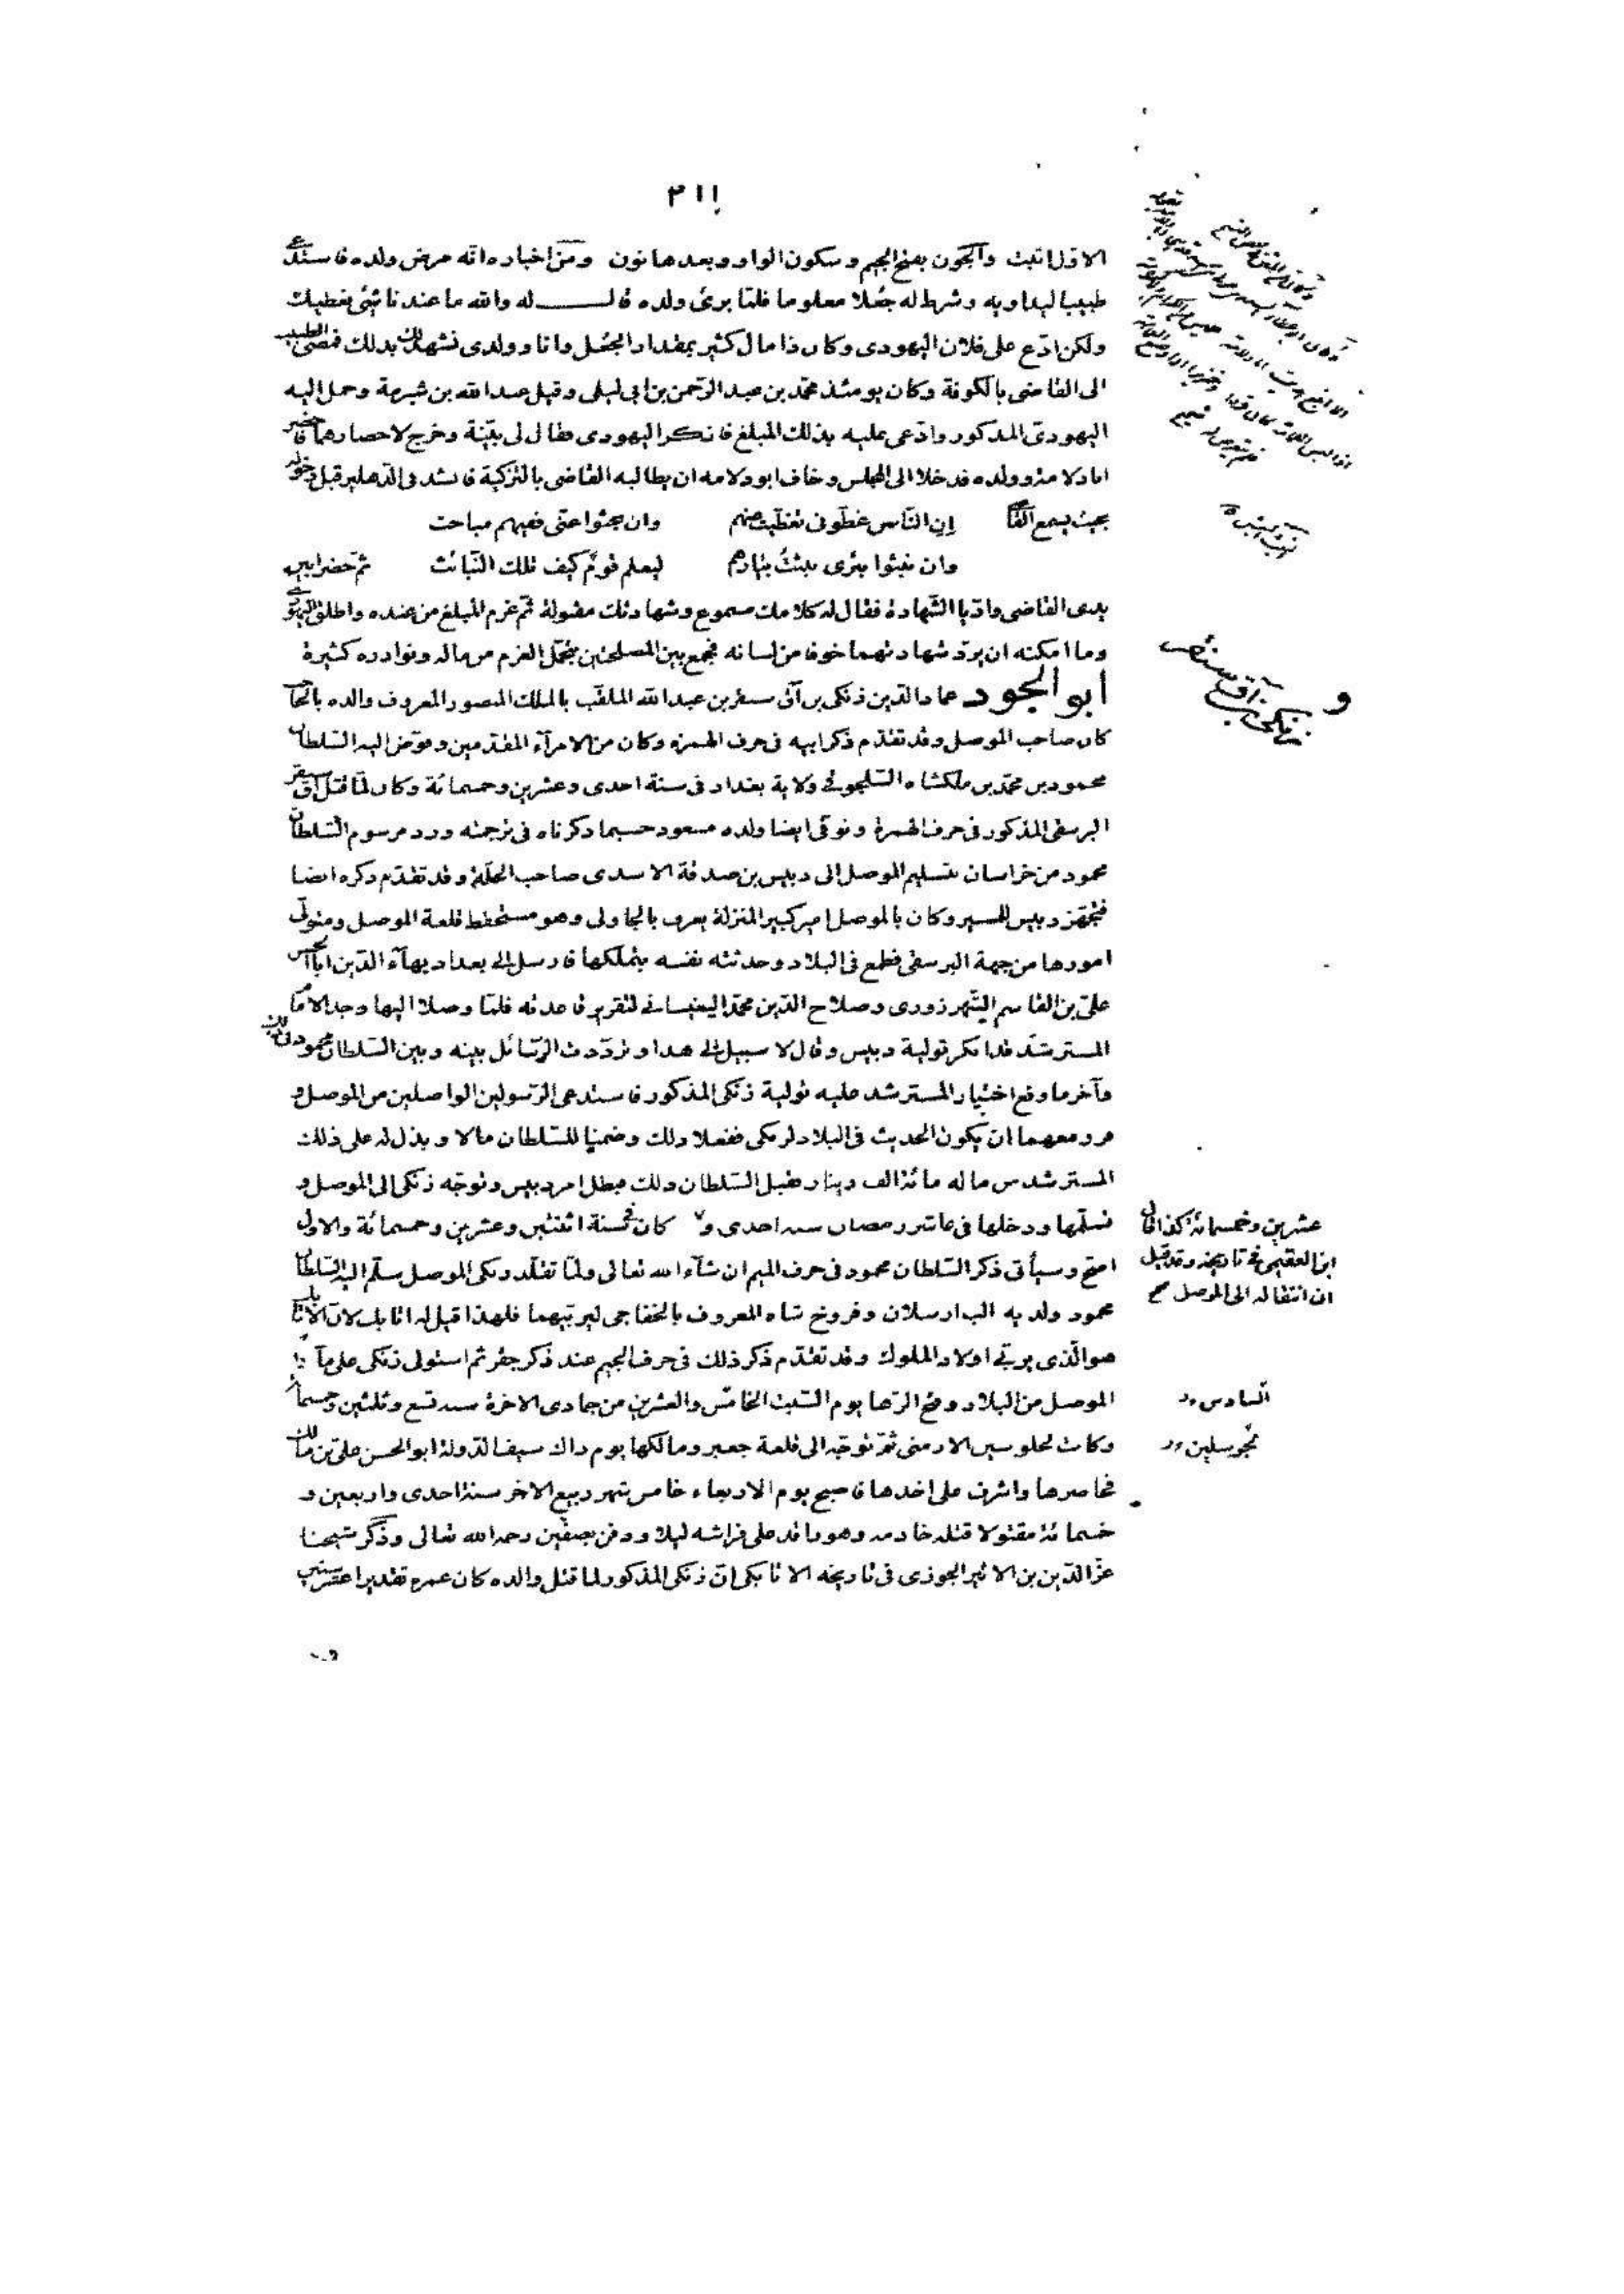 ٢١١
الاول اثبت والجون بفتح الجيم وسكون الواو وبعدها نون ومن اخباره انه مرض ولده فاستدعى
طبيبا ليداويه وشرط له جعلا معلوما فلما برئ ولده قال له والله ما عندنا شئ نعطيك
ولكن ادع على فلان اليهودى وكان ذا مال كثير بمقدار الجعل وانا وولدى نشهد لك بذلك فمضى الطبيب
الى القاضى بالكوفة وكان يومئذ محمد بن عبد الرحمن بن ابى ليلى وقيل عبد الله بن شبرمة وحمل اليه
اليهودى المذكور وادعى عليه بذلك المبلغ فانكر اليهودى فقال لى بينة وخرج لاحضارها فاحضر
ابا دلامة وولده فدخلا الى المجلس وخاف ابو دلامه ان يطالبه القاضى بالتزكية فانشد فى الدهليز قبل دخوله
بحيث يسمع القاضى ان الناس غطونى تغطيت عنهم وان بحثوا عنى ففيهم مباحث
وان نبثوا بئرى نبثت بئارهم ليعلم قوم كيف تلك النبائث ثم حضرا بين
يدى القاضى واديا الشهادة فقال له كلامك مسموع وشهادتك مقبولة ثم غرم المبلغ من عنده واطلق اليهودى
وما امكنه ان يرد شهادتهما خوفا من لسانه فجمع بين المصلحتين بتحمل الغرم من ماله ونوادره كثيرة
أبو الجود عماد الدين زنكى بن آق سنقر بن عبد الله الملقب بالملك المنصور المعروف والده بالحاجب
كان صاحب الموصل وقد تقدم ذكر ابيه فى حرف الهمزه وكان من الامرآء المقدمين وفوض اليه السلطان
محمود بن محمد بن ملكشاه السلجوقى ولاية بغداد فى سنة احدى وعشرين وخمسمائة وكان لما قتل آق سنقر
البرسقى المذكور فى حرف الهمزة وتوفى ايضا ولده مسعود حسبما ذكرناه فى ترجمته ورد مرسوم السلطان
محمود من خراسان بتسليم الموصل الى دبيس بن صدقة الاسدى صاحب الحلة وقد تقدم ذكره ايضا
فتجهز دبيس للمسير وكان بالموصل امير كبير المنزلة يعرف بالجاولى وهو مستحفظ قلعة الموصل ومتولى
امورها من جهة البرسقى فطمع فى البلاد وحدثته نفسه بتملكها فارسل الى بغداد بهآء الدين ابا الحسن
على بن القاسم الشهرزورى وصلاح الدين محمد اليغيسانى لتقرير قاعدته فلما وصلا اليها وجدا الامام
المسترشد قد انكر تولية دبيس وقال لا سبيل الى هذا وترددت الرسائل بينه وبين السلطان محمود فى ذلك
وآخر ما وقع اختيار المسترشد عليه تولية زنكى المذكور فاستدعى الرسولين الواصلين من الموصل و
قرر معهما ان يكون الحديث فى البلاد لزنكى ففعلا ذلك وضمنا للسلطان مالا وبذل له على ذلك
المسترشد من ماله مائة الف دينار فقبل السلطان ذلك فبطل امر دبيس وتوجه زنكى الى الموصل و
تسلمها ودخلها فى عاشر رمضان سنة احدى و كان فى سنة اثنتين وعشرين وخمسمائة والاول
اصح وسيأتى ذكر السلطان محمود فى حرف الميم ان شآء الله تعالى ولما تقلد زنكى الموصل سلم اليه السلطان
محمود ولديه الب ارسلان وفروخ شاه المعروف بالخفاجى ليربيهما فلهذا قيل له اتابك لان الاتابك
هو الذى يربى اولاد الملوك وقد تقدم ذكر ذلك فى حرف الجيم عند ذكر جقر ثم استولى زنكى على ما
الموصل من البلاد وفتح الرها يوم السبت الخامس والعشرين من جمادى الاخرة سنة تسع وثلثين وخمسمائة
وكانت لجلوسين الارمنى ثم توجه الى قلعة جعبر ومالكها يوم ذاك سيف الدولة ابو الحسن على بن مالك
فحاصرها واشرف على اخذها فاصبح يوم الاربعاء خامس شهر ربيع الاخر سنة احدى واربعين و
خمسمائة مقتولا قتله خادمه وهو راقد على فراشه ليلا ودفن بصفين رحمه الله تعالى وذكر شيخنا
عز الدين بن الاثير الجوزى فى تاريخه الاتابكى ان زنكى المذكور لما قتل والده كان عمره تقديرا عشر سنين
زنكى بن آق سنقر
عشرين وخمسمائة كذا قال
ابن العظيمى فى تاريخه وقد قيل
ان انتقاله الى الموصل صح
السادس
بجوسلين